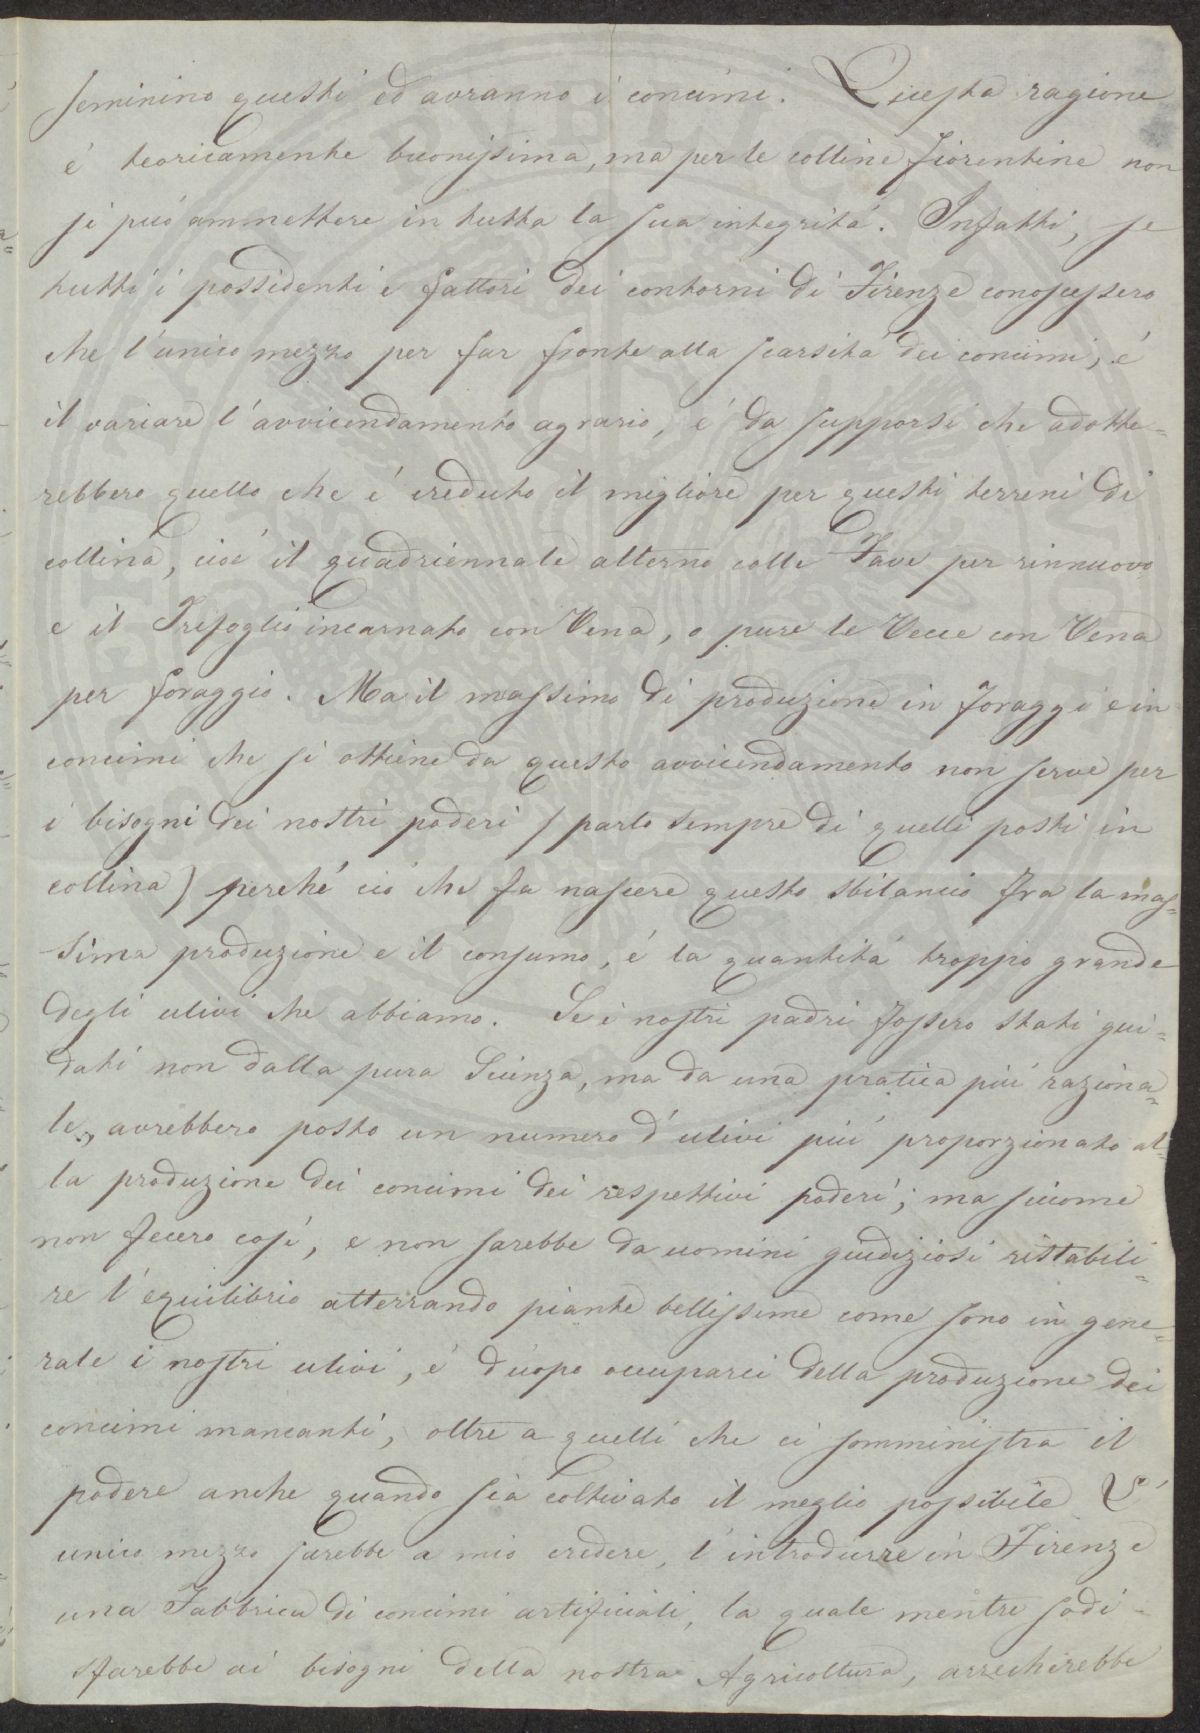 seminino questi ed avranno i concimi. Questa ragione
é teoricamente buonissima, ma per le colline fiorentine non
si puó ammettere in tutta la sua integritá. Infatti, se
tutti i possidenti e fattori dei contorni di Firenze conoscessero
che l'unico mezzo per far fronte alla scarsitá dei concimi, é
il variare l'avvicendamento agrario, é da supporsi che adotte=
rebbero quello che é creduto il migliore per questi terreni di
collina, cioé il quadriennale alterno colle Fave per rinnuovo
e il Trifoglio incarnato con Vena, o pure le Vecce con Vena
per foraggio. Ma il massimo di produzione in foraggi e in
concimi che si ottiene da questo avvicendamento non serve per
i bisogni dei nostri poderi (parlo sempre di quelli posti in
collina) perché ció che fa nascere questo sbilancio fra la mas=
sima produzione e il consumo, é la quantitá troppo grande
degli ulivi che abbiamo. Se i nostri padri fossero stati gui=
dati non dalla pura Scienza, ma da una pratica piú raziona=
le, avrebbero posto un numero d'ulivi piú proporzionato al=
la produzione dei concimi dei respettivi poderi; ma siccome
non fecero cosí, e non sarebbe da uomini giudiziosi ristabili=
re l'equilibrio atterrando piante bellissime come sono in gene=
rale i nostri ulivi, é d'uopo occuparci della produzione dei
concimi mancanti, oltre a quelli che ci somministra il
podere anche quando sia coltivato il meglio possibile L'
unico mezzo sarebbe a mio credere, l'introdurre in Firenze
una Fabbrica di concimi artificiali, la quale mentre sodi=
sfarebbe ai bisogni della nostra Agricoltura, arrecherebbe